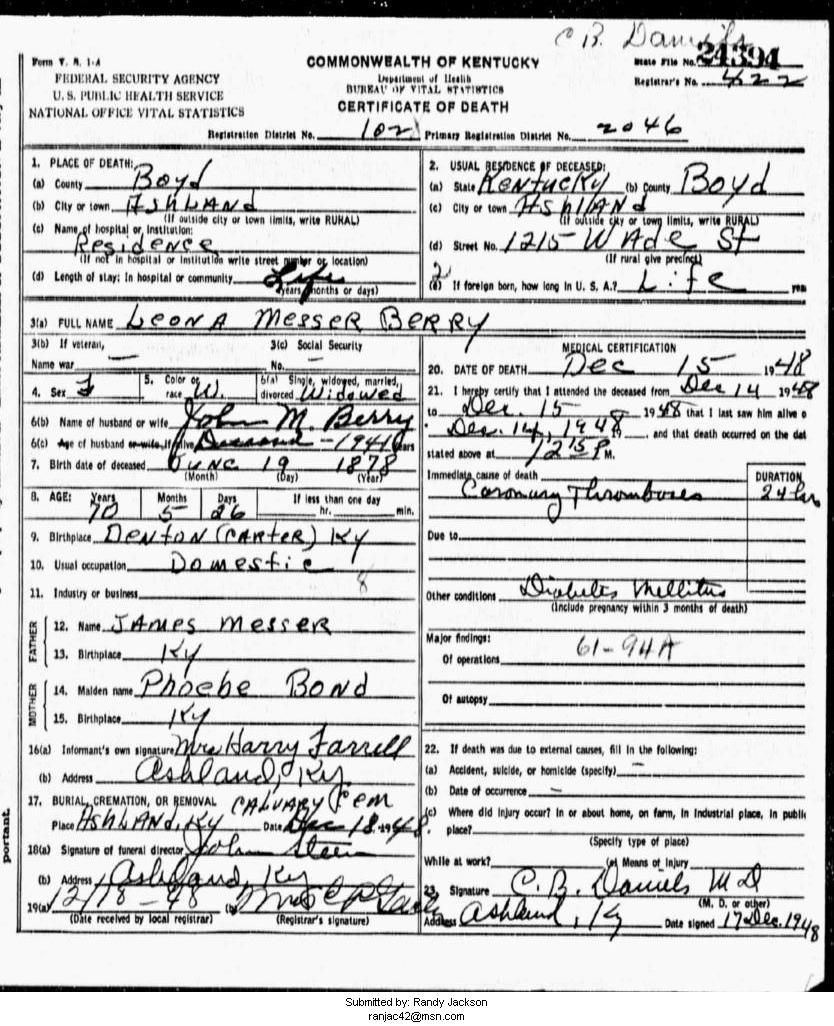 C. B. Daniels
Form V. S. 1-A
FEDERAL SECURITY AGENCY
U. S. PUBLIC HEALTH SERVICE
NATIONAL OFFICE VITAL STATISTICS
COMMONWEALTH OF KENTUCKY
Department of Health
BUREAU OF VITAL STATISTICS
CERTIFICATE OF DEATH
State File No. 24394
Registrar's No. 422
Registration District No. 102 Primary Registration District No. 2046
1. PLACE OF DEATH:
(a) County Boyd
(b) City or town Ashland
(If outside city or town limits, write RURAL)
(c) Name of hospital or institution:
Residence
(If not in hospital or institution write street number or location)
(d) Length of stay: In hospital or community Life
(years, months or days)
2. USUAL RESIDENCE OF DECEASED:
(a) State Kentucky (b) County Boyd
(c) City or town Ashland
(If outside city or town limits, write RURAL)
(d) Street No. 1215 Wade St
(If rural give precinct)
2
(e) If foreign born, how long in U. S. A.? Life
3(a) FULL NAME Leona Messer Berry
3(b) If veteran,
Name war —
3(c) Social Security
No. —
4. Sex F
5. Color or race W.
6(a) Single, widowed, married, divorced Widowed
6(b) Name of husband or wife John M. Berry
6(c) Age of husband or wife, if alive Deceased - 1941 years
7. Birth date of deceased June 19 1878
(Month) (Day) (Year)
8. AGE: Years Months Days If less than one day
70 5 26 hr. min.
9. Birthplace Denton (Carter) Ky
10. Usual occupation Domestic
11. Industry or business 8
FATHER
12. Name James Messer
13. Birthplace Ky
MOTHER
14. Maiden name Phoebe Bond
15. Birthplace Ky
16(a) Informant's own signature Mrs Harry Farrell
(b) Address Ashland, Ky
17. BURIAL, CREMATION, OR REMOVAL Calvary Cem
Place Ashland, Ky Date Dec 18, 1948.
18(a) Signature of funeral director John Steen
(b) Address Ashland, Ky
19(a) 12/18-48 (b) Mrs C P
(Date received by local registrar) (Registrar's signature)
MEDICAL CERTIFICATION
20. DATE OF DEATH Dec 15 1948
21. I hereby certify that I attended the deceased from Dec 14 1948
to Dec. 15 1948 that I last saw him alive o
Dec. 14, 1948, and that death occurred on the dat
stated above at 12 15 P. M.
Immediate cause of death DURATION
Coronary Thromboses 24 hr
Due to
Other conditions Diabetes Mellitus
(Include pregnancy within 3 months of death)
Major findings:
Of operations 61-94A
Of autopsy
22. If death was due to external causes, fill in the following:
(a) Accident, suicide, or homicide (specify) —
(b) Date of occurrence —
(c) Where did injury occur? In or about home, on farm, in industrial place, in public
place?
(Specify type of place)
While at work? (e) Means of injury
23. Signature C. B. Daniels M D
(M. D. or other)
Address Ashland, Ky Date signed 17 Dec. 1948
portant.
Submitted by: Randy Jackson
ranjac42@msn.com